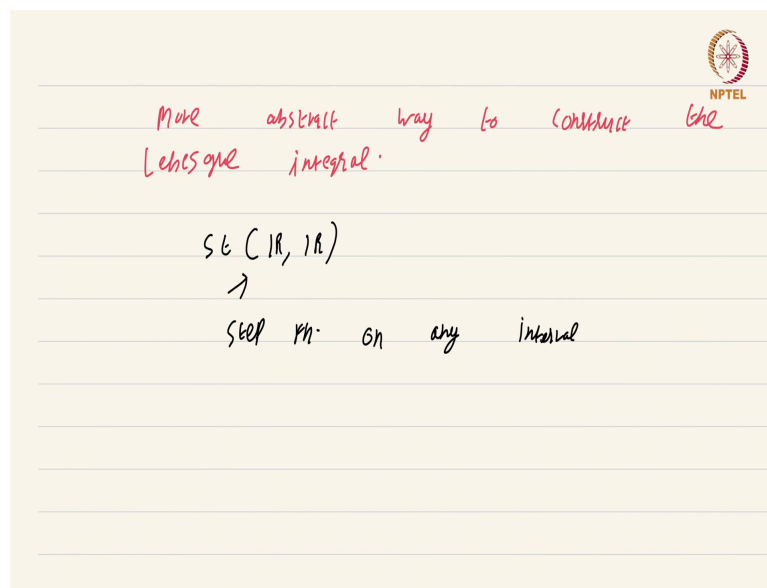 NPTEL
More abstract way to construct the
Lebesgue integral.
St (IR, IR)
Step fn. on any interval